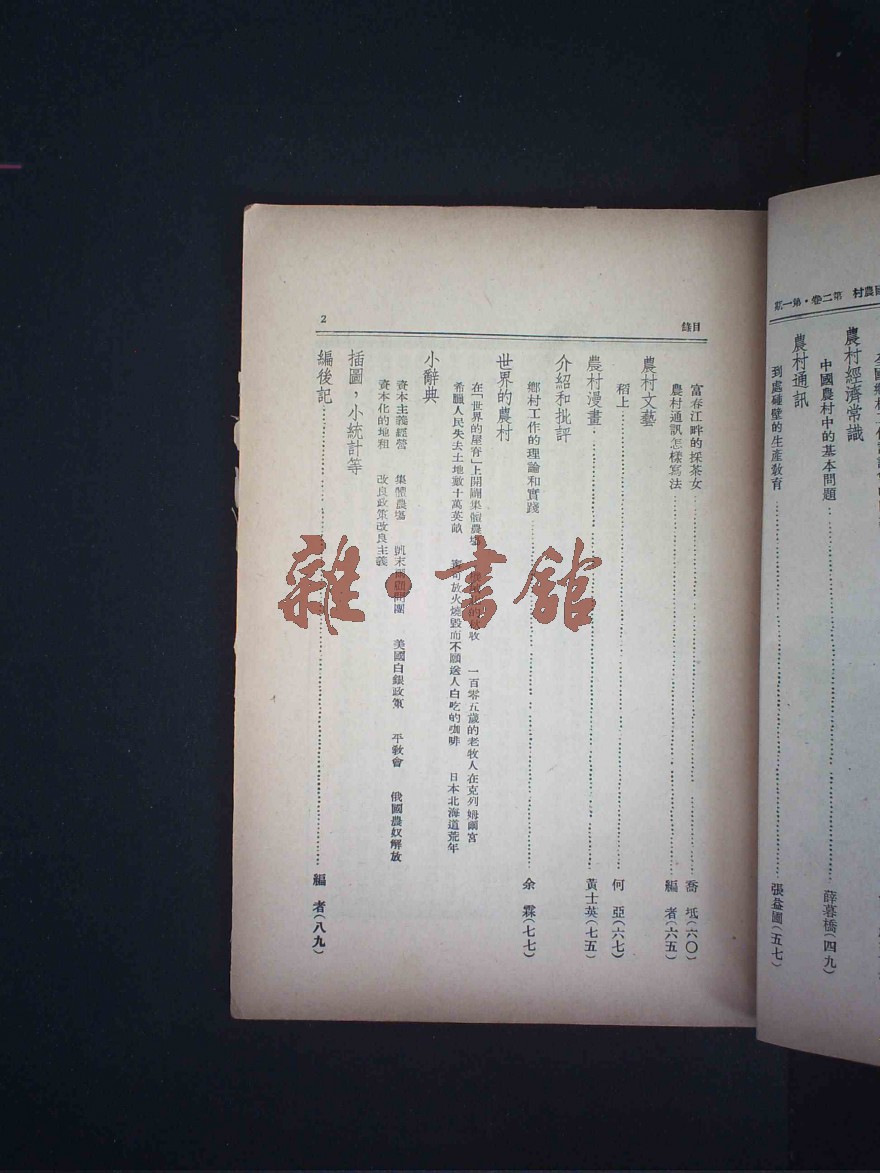 國農村 第二卷・第一期
農村經濟常識
中國農村中的基本問題……薛暮橋(四九)
農村通訊
到處碰壁的生產教育……張益圃(五七)
目錄
2
富春江畔的採茶女……喬 坻(六〇)
農村通訊怎樣寫法……編 者(六五)
農村文藝
稻上……何 亞(六七)
農村漫畫……黃士英(七五)
介紹和批評
鄉村工作的理論和實踐……余 霖(七七)
世界的農村
在「世界的屋脊」上開闢集體農場 一百零五歲的老牧人在克列姆爾宮
希臘人民失去土地數十萬英畝 寧可放火燒毀而不願送人白吃的咖啡 日本北海道荒年
小辭典
資本主義經營 集體農場 凱末爾顧問團 美國白銀政策 平教會 俄國農奴解放
資本化的地租 改良政策改良主義
插圖，小統計等
編後記……編 者(八九)
雜・書館